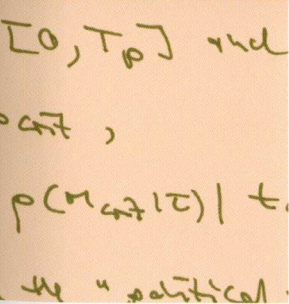 [0, T_p] and
p(m_cnt|τ)| t
the "political